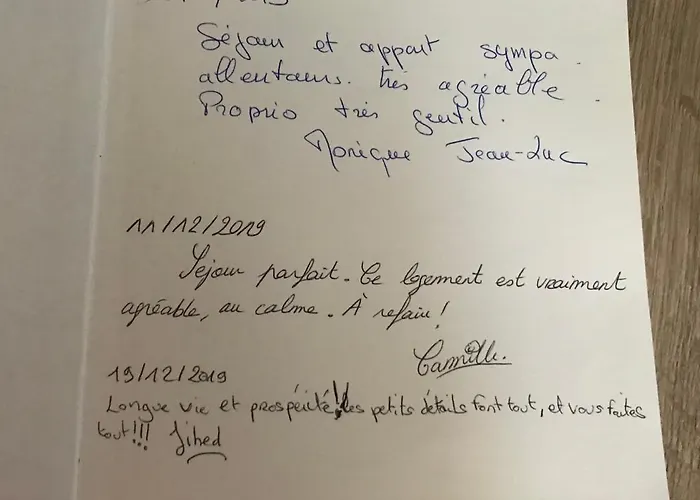 Séjour et appart sympa.
allentours. très agréable
Proprio très gentil.
Monique Jean-Luc
11/12/2019
Séjour parfait. Ce logement est vraiment
agréable, au calme. À refaire !
Camille.
19/12/2019
Longue vie et prospérité!! les petits détails font tout, et vous faites
tout!!! Jihed